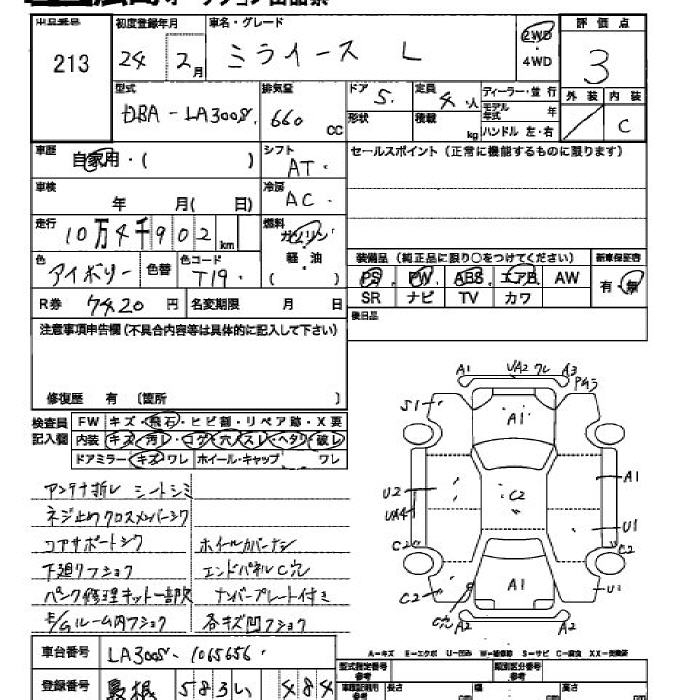 出品番号 213
初度登録年月 24年 2月
車名・グレード ミライース L
2WD・4WD
評価点 3
外装 / 内装 C
型式 DBA-LA300S
排気量 660 CC
ドア 5 定員 4人
形状 積載 kg
ディーラー・並行
モデル年式 年
ハンドル 左・右
車歴 自家用・( )
シフト AT
セールスポイント (正常に機能するものに限ります)
車検 年 月( 日)
冷房 AC
走行 10万4千902km
燃料 ガソリン 軽油 ( )
色 アイボリー 色替 色コード T19
装備品 (純正品に限り○をつけてください) 新車保証書
PS PW ABS エアB AW 有・無
SR ナビ TV カワ
R券 7420円 名変期限 月 日
後日品
注意事項申告欄(不具合内容等は具体的に記入して下さい)
修復歴 有 〔箇所 〕
検査員記入欄
FW キズ・飛石・ヒビ割・リペア跡・X要
内装 キズ・汚レ・コゲ・穴・スレ・ヘタリ・破レ
ドアミラー キズ・ワレ ホイール・キャップ ワレ
アンテナ折レ シートシミ
ネジ止メクロスメンバーシワ
コアサポートシワ ホイールカバーナシ
下廻リフショク エンドパネルC穴
パンク修理キット一部欠 ナンバープレート付き
E/Gルーム内フショク 各キズ凹フショク
A1 A2 ワレ A3
S1
A1
A1
U2
C2
U1
C2 C2
C2 C穴 A1
A2 A2
A=キズ E=エクボ U=凹み W=補修跡 S=サビ C=腐食 XX=交換済
車台番号 LA300S-1065656
型式指定番号 類別区分番号
登録番号 島根 583 い 484
長さ 幅 高さ